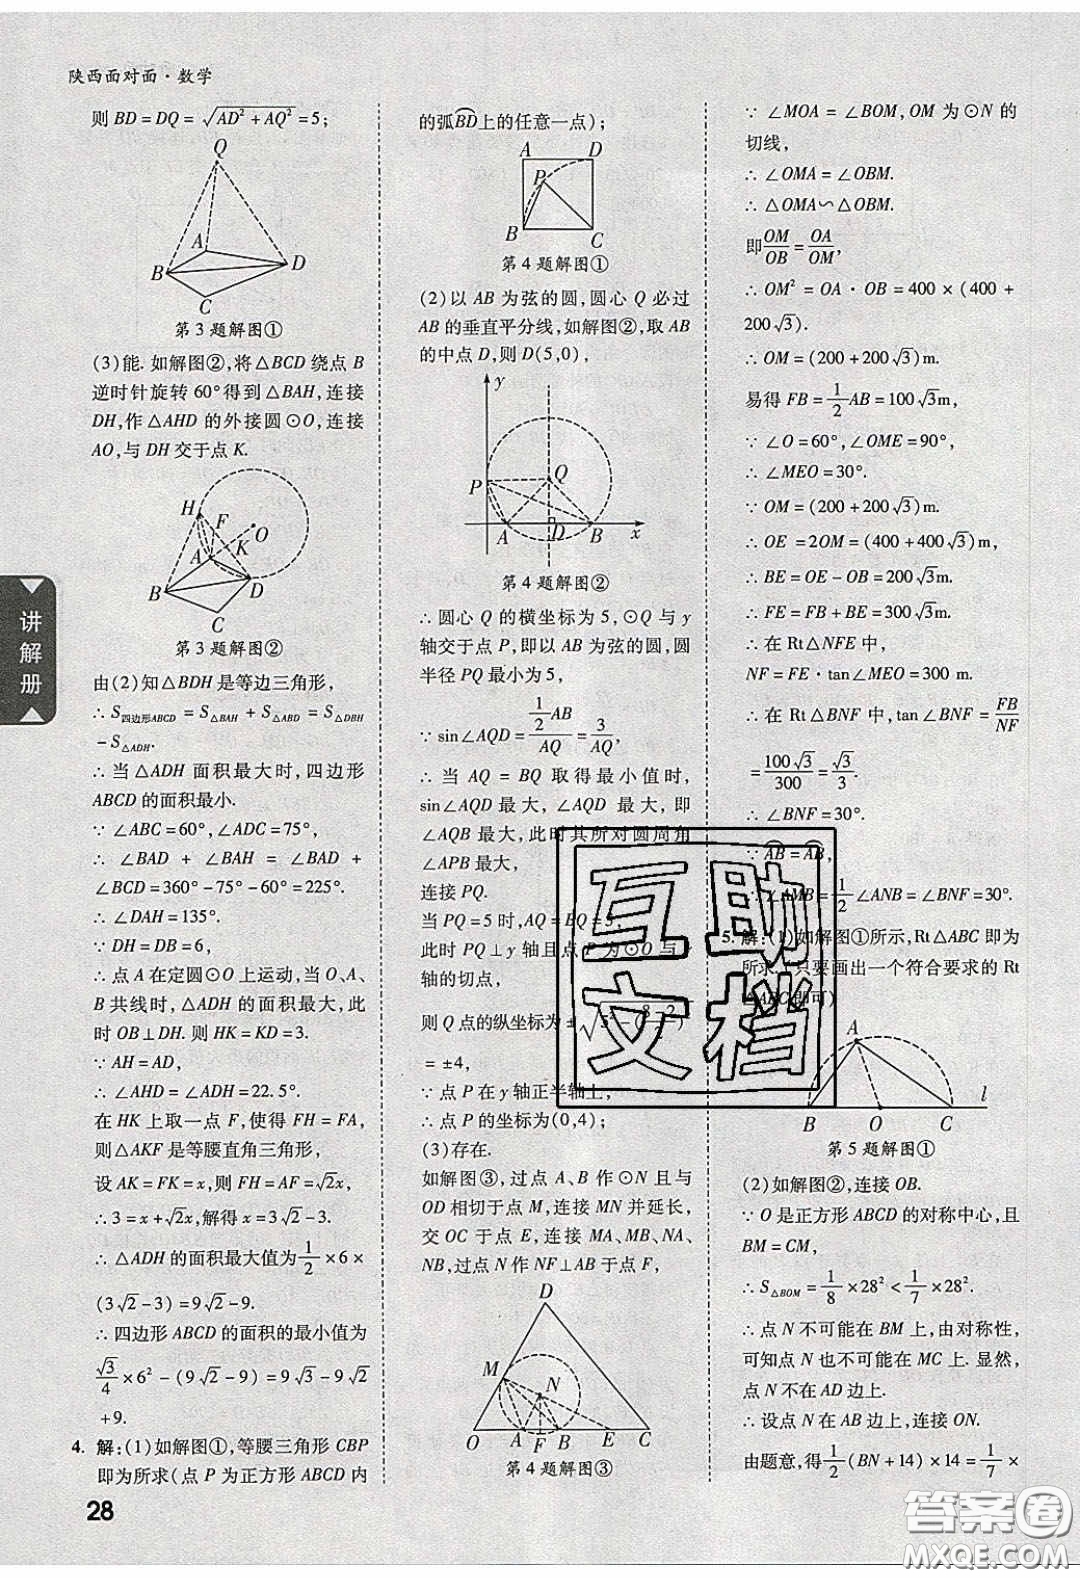 陕西面对面·数学
则 BD = DQ = √(AD² + AQ²) = 5;
Q
A
B
D
C
第 3 题解图①
(3)能. 如解图②,将△BCD 绕点 B
逆时针旋转 60°得到△BAH,连接
DH,作△AHD 的外接圆⊙O,连接
AO,与 DH 交于点 K.
H
F
O
K
A
B
D
C
第 3 题解图②
由(2)知△BDH 是等边三角形,
∴ S四边形ABCD = S△BAH + S△ABD = S△DBH
- S△ADH.
∴ 当△ADH 面积最大时,四边形
ABCD 的面积最小.
∵ ∠ABC = 60°,∠ADC = 75°,
∴ ∠BAD + ∠BAH = ∠BAD +
∠BCD = 360° - 75° - 60° = 225°.
∴ ∠DAH = 135°.
∵ DH = DB = 6,
∴ 点 A 在定圆⊙O 上运动,当 O、A、
B 共线时,△ADH 的面积最大,此
时 OB⊥DH. 则 HK = KD = 3.
∵ AH = AD,
∴ ∠AHD = ∠ADH = 22.5°.
在 HK 上取一点 F,使得 FH = FA,
则△AKF 是等腰直角三角形,
设 AK = FK = x,则 FH = AF = √2x.
∴ 3 = x + √2x,解得 x = 3√2 - 3.
∴ △ADH 的面积最大值为 1/2 × 6 ×
(3√2 - 3) = 9√2 - 9.
∴ 四边形 ABCD 的面积的最小值为
√3/4 × 6² - (9√2 - 9) = 9√3 - 9√2
+ 9.
4. 解:(1)如解图①,等腰三角形 CBP
即为所求(点 P 为正方形 ABCD 内
28
讲解册
的弧BD上的任意一点);
A
D
P
B
C
第 4 题解图①
(2)以 AB 为弦的圆,圆心 Q 必过
AB 的垂直平分线,如解图②,取 AB
的中点 D,则 D(5,0),
y
P
Q
A
D
B
x
第 4 题解图②
∴ 圆心 Q 的横坐标为 5,⊙Q 与 y
轴交于点 P,即以 AB 为弦的圆,圆
半径 PQ 最小为 5,
∵ sin∠AQD = (1/2 AB)/AQ = 3/AQ,
∴ 当 AQ = BQ 取得最小值时,
sin∠AQD 最大,∠AQD 最大,即
∠AQB 最大,此时其所对圆周角
∠APB 最大,
连接 PQ.
当 PQ = 5 时,AQ = BQ = 5,
此时 PQ⊥y 轴且点 P 为⊙O 与 y
轴的切点,
则 Q 点的纵坐标为 ±√(5² - ((8-2)/2)²)
= ±4,
∵ 点 P 在 y 轴正半轴上,
∴ 点 P 的坐标为(0,4);
(3)存在.
如解图③,过点 A、B 作⊙N 且与
OD 相切于点 M,连接 MN 并延长,
交 OC 于点 E,连接 MA、MB、NA、
NB,过点 N 作 NF⊥AB 于点 F,
D
M
N
O
A
F
B
E
C
第 4 题解图③
∵ ∠MOA = ∠BOM,OM 为⊙N 的
切线,
∴ ∠OMA = ∠OBM.
∴ △OMA∽△OBM.
即 OM/OB = OA/OM,
∴ OM² = OA·OB = 400 × (400 +
200√3).
∴ OM = (200 + 200√3)m.
易得 FB = 1/2 AB = 100√3m,
∵ ∠O = 60°,∠OME = 90°,
∴ ∠MEO = 30°.
∵ OM = (200 + 200√3)m,
∴ OE = 2OM = (400 + 400√3)m,
∴ BE = OE - OB = 200√3m,
∴ FE = FB + BE = 300√3m.
∴ 在 Rt△NFE 中,
NF = FE·tan∠MEO = 300 m.
∴ 在 Rt△BNF 中,tan∠BNF = FB/NF
= 100√3/300 = √3/3.
∴ ∠BNF = 30°.
∵ AB = AB,
∴ ∠AMB = 1/2 ∠ANB = ∠BNF = 30°.
5. 解:(1)如解图①所示,Rt△ABC 即为
所求.(只要画出一个符合要求的 Rt
△ABC 即可)
A
B
O
C
l
第 5 题解图①
(2)如解图②,连接 OB.
∵ O 是正方形 ABCD 的对称中心,且
BM = CM,
∴ S△BOM = 1/8 × 28² < 1/7 × 28².
∴ 点 N 不可能在 BM 上,由对称性,
可知点 N 也不可能在 MC 上. 显然,
点 N 不在 AD 边上.
∴ 设点 N 在 AB 边上,连接 ON.
由题意,得 1/2 (BN + 14) × 14 = 1/7 ×
互助
文档
答案圈
MXQE.COM